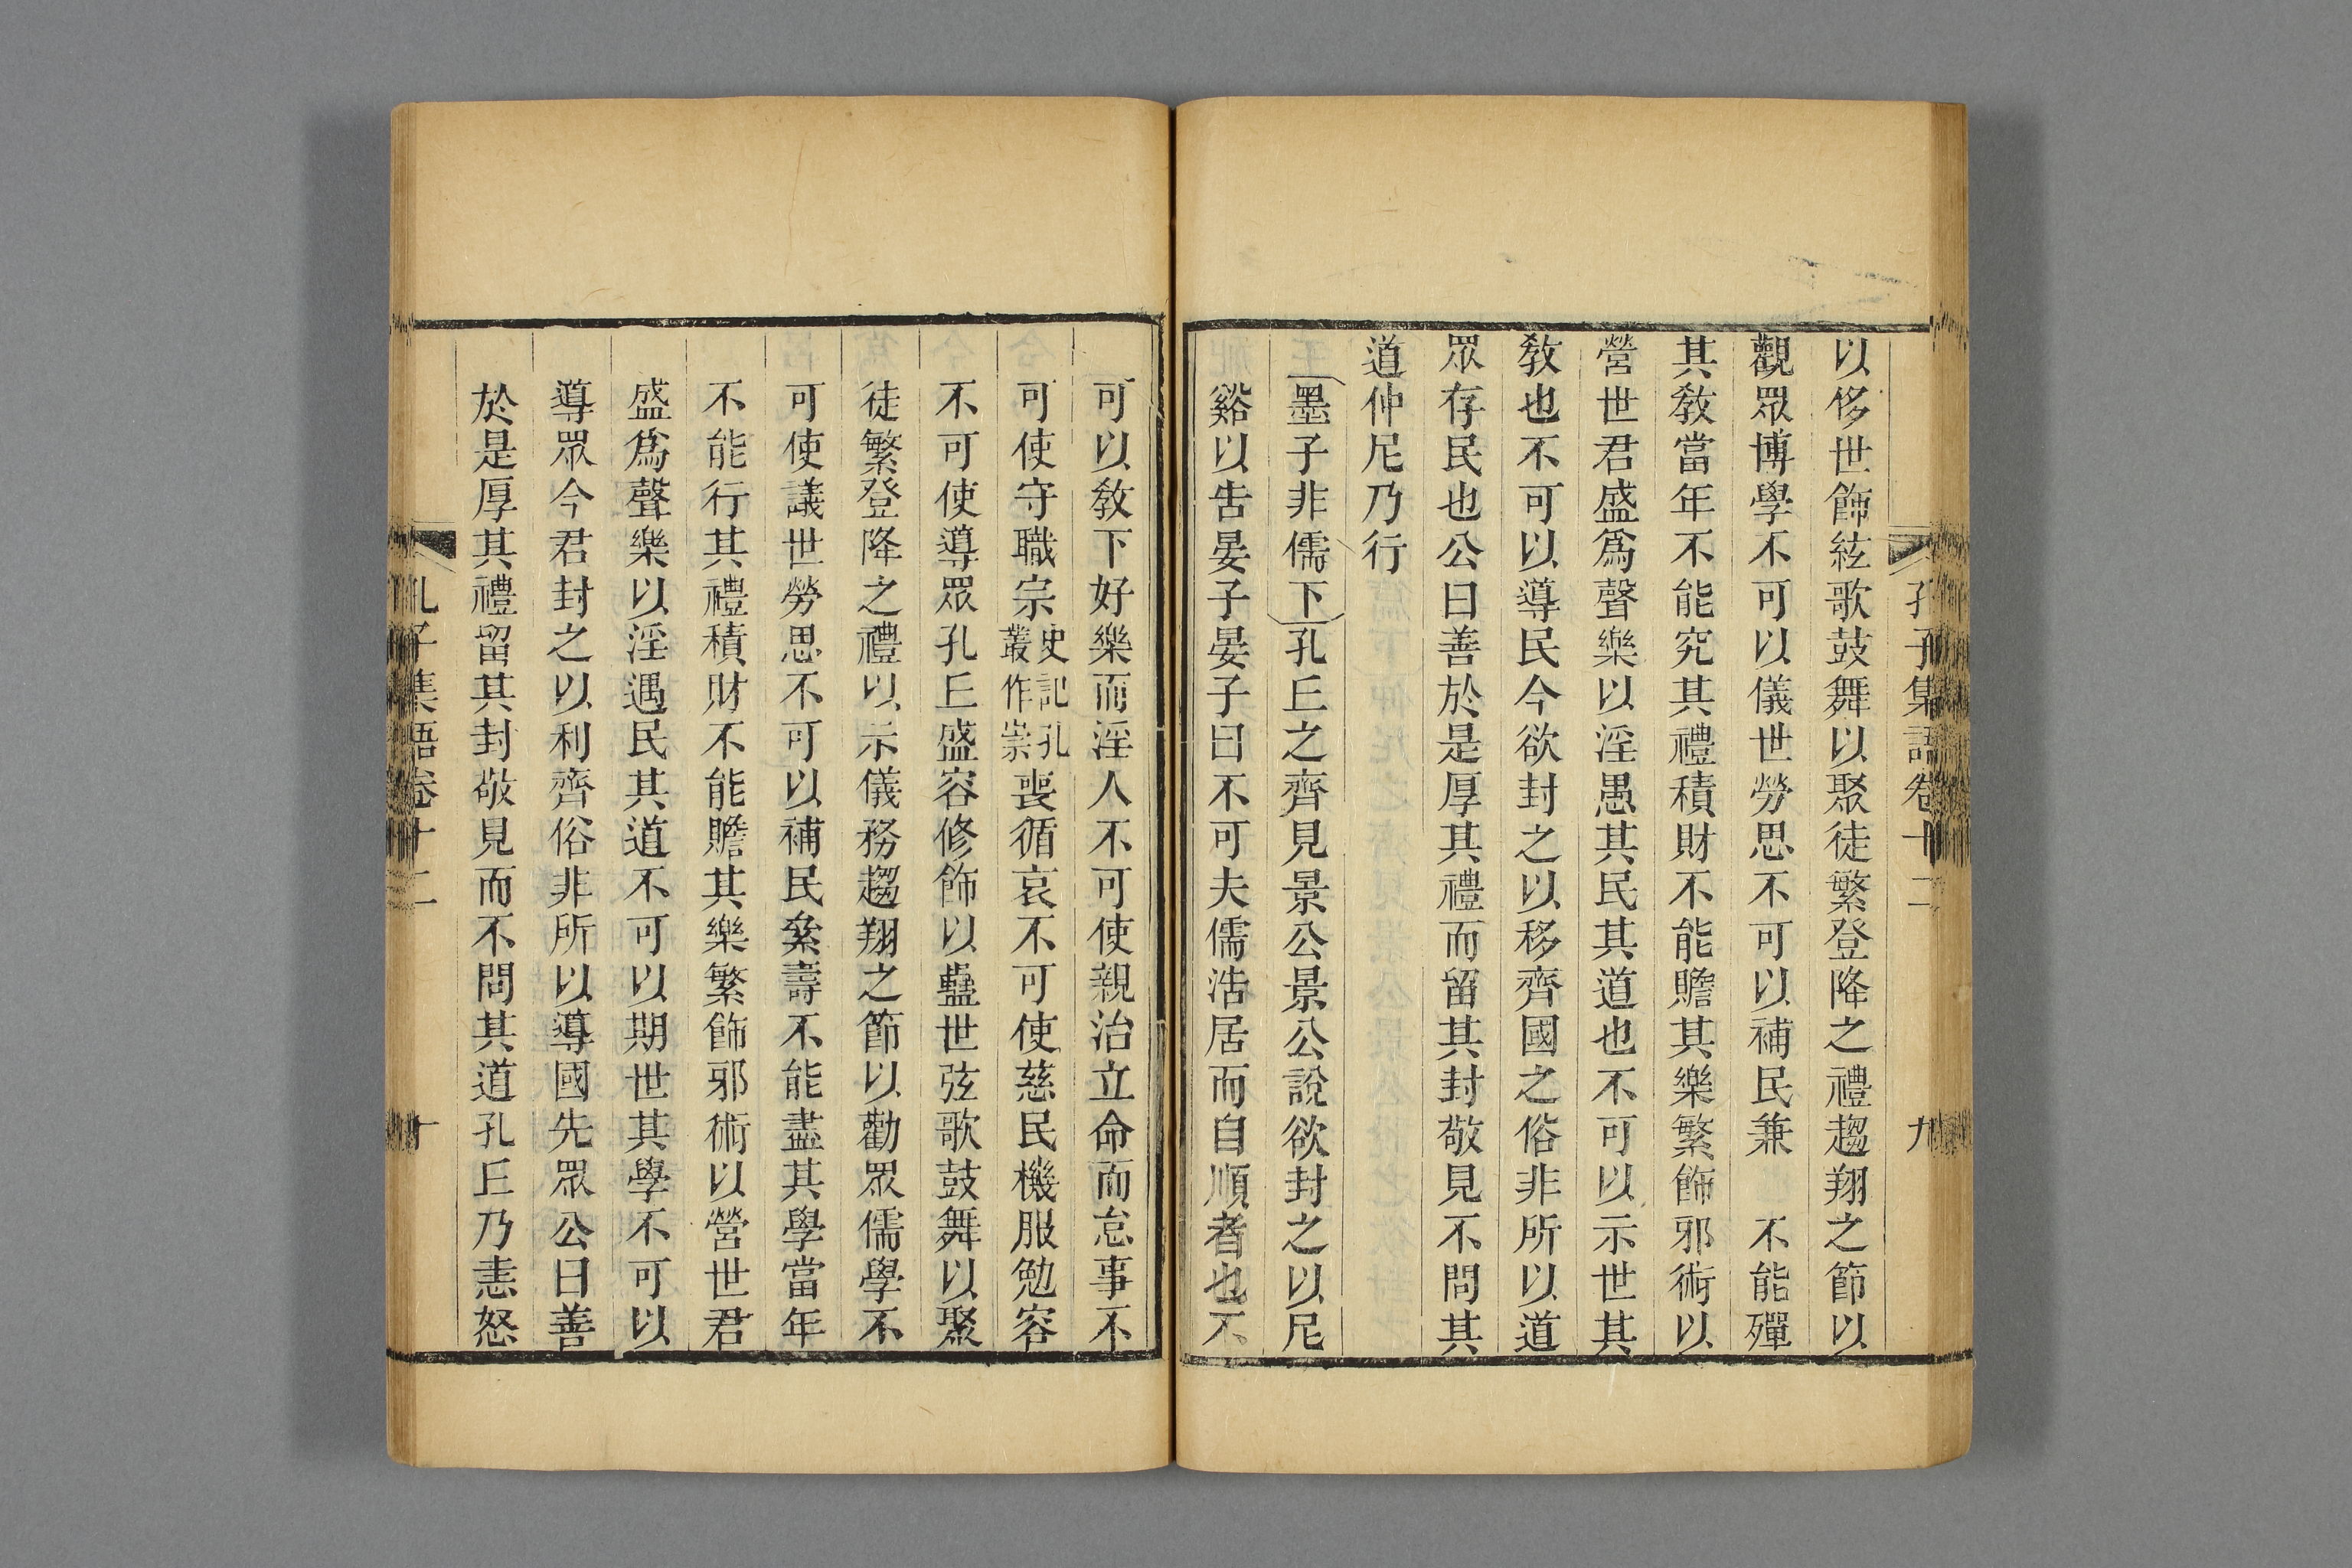 孔子集語卷十二 九
以侈世飾絃歌鼓舞以聚徒繁登降之禮趨翔之節以
觀眾博學不可以儀世勞思不可以補民兼 不能殫
其敎當年不能究其禮積財不能贍其樂繁飾邪術以
營世君盛爲聲樂以淫愚其民其道也不可以示世其
敎也不可以導民今欲封之以移齊國之俗非所以道
眾存民也公曰善於是厚其禮而留其封敬見不問其
道仲尼乃行
墨子非儒下孔𠀉之齊見景公景公說欲封之以尼
谿以告晏子晏子曰不可夫儒浩居而自順者也不
可以敎下好樂而淫人不可使親治立命而怠事不
可使守職宗史記孔叢作崇喪循哀不可使慈民機服勉容
不可使導眾孔𠀉盛容修飾以蠱世弦歌鼓舞以聚
徒繁登降之禮以示儀務趨翔之節以勸眾儒學不
可使議世勞思不可以補民絫壽不能盡其學當年
不能行其禮積財不能贍其樂繁飾邪術以營世君
盛爲聲樂以淫遇民其道不可以期世其學不可以
導眾今君封之以利齊俗非所以導國先眾公曰善
於是厚其禮留其封敬見而不問其道孔𠀉乃恚怒
孔子集語卷十二 十